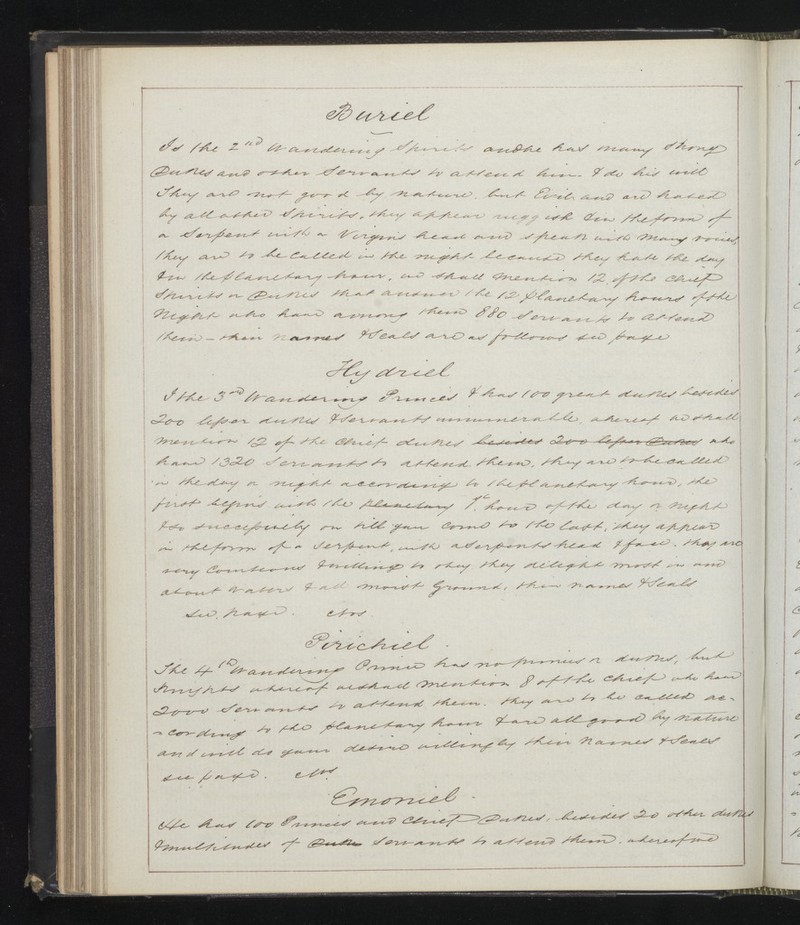 Buriel
Is the 2nd Wandering Spirits and he has many strong
Dukes and other Servants to attend him. & do his will
They are not good by nature. but Evil. and are hated
by all other Spirits, they appear in the form of
a Serpent with a Virgins head and speak with Many voices,
they are to be Called in the night because they hate the day
& in the planetary hour, we shall Mention 12 of the Chief
Spirits or Dukes that answer the 12 planetary hours of the
Night who have among them 880 Servants to attend
them – their names & Seals are as follows see page
Hydriel
I the 3rd Wandering Princes & has 100 great dukes besides
200 lesser dukes & Servants innumerable. whereof we shall
mention 12 of the Chief dukes besides 200 lesser Dukes who
have 1320 Servants to attend them, they are to be called
in the day or night according to the planetary hour, the
first begins with the planetary 1st hour of the day or Night
& so successively on till you come to the last, they appear
in the form of a Serpent, with a Serpents head & face. they are
very Courteous & willing to obey they delight most in and
about waters & all moist Ground, their names & Seals
see page. Nos
Pirichiel
The 4th Wandering Prince has no princes or dukes, but
Knights whereof we shall mention 8 of the chief who have
2000 Servants to attend them. they are to be called ac-
-cording to the planetary hour & are all good by nature
and will do your desire willingly their Names & Seals
see page. Nos
Emoniel
He has 100 Princes and Chief Dukes, besides 20 other dukes
& multitudes of Dukes Servants to attend them. whereof we